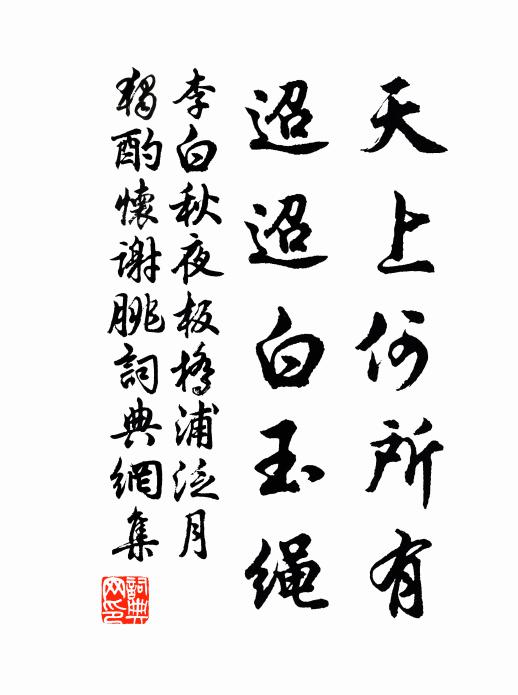 天上何所有
迢迢白玉绳
李白秋夜板橋浦泛月
獨酌懷谢朓詞典網集
詞典网印